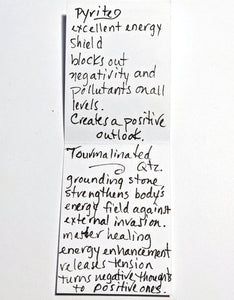 Pyrites
excellent energy
Shield
blocks out
negativity and
pollutants on all
levels.
Creates a positive
outlook.
Tourmalinated
Qtz.
grounding stone
strengthens body's
energy field against
external invasion.
master healing
energy enhancement
releases tension
turns negative thoughts
to positive ones.